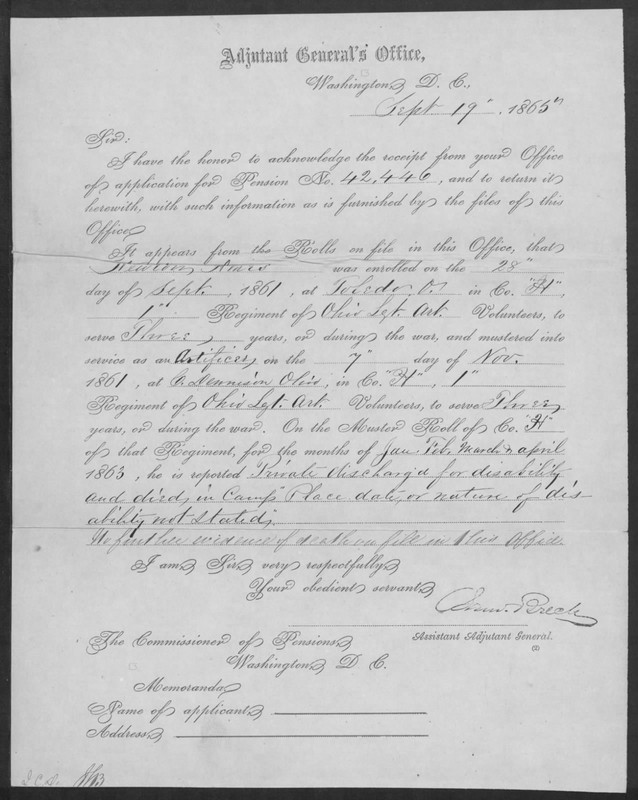 Adjutant General's Office,
Washington, D. C.,
Sept 19", 1865
Sir:
I have the honor to acknowledge the receipt from your Office
of application for Pension No. 42,446, and to return it
herewith, with such information as is furnished by the files of this
Office.
It appears from the Rolls on file in this Office, that
was enrolled on the 28"
day of Sept. 1861, at Toledo, O. in Co. "H",
1" Regiment of Ohio Lgt. Art. Volunteers, to
serve Three years, or during the war, and mustered into
service as an Artificer, on the 7" day of Nov.
1861, at C. Dennison Ohio, in Co. "H", 1"
Regiment of Ohio Lgt. Art. Volunteers, to serve Three
years, or during the war. On the Muster Roll of Co. "H"
of that Regiment, for the months of Jan Feb, March & April
1863, he is reported "Private discharg'd for disability
and died, in Camp" Place date, or nature of dis-
ability not stated;
No further evidence of death on file in this Office.
I am, Sir, very respectfully,
Your obedient servant,
Saml. Breck
Assistant Adjutant General.
The Commissioner of Pensions,
Washington, D. C.
Memoranda
Name of applicant,
Address,